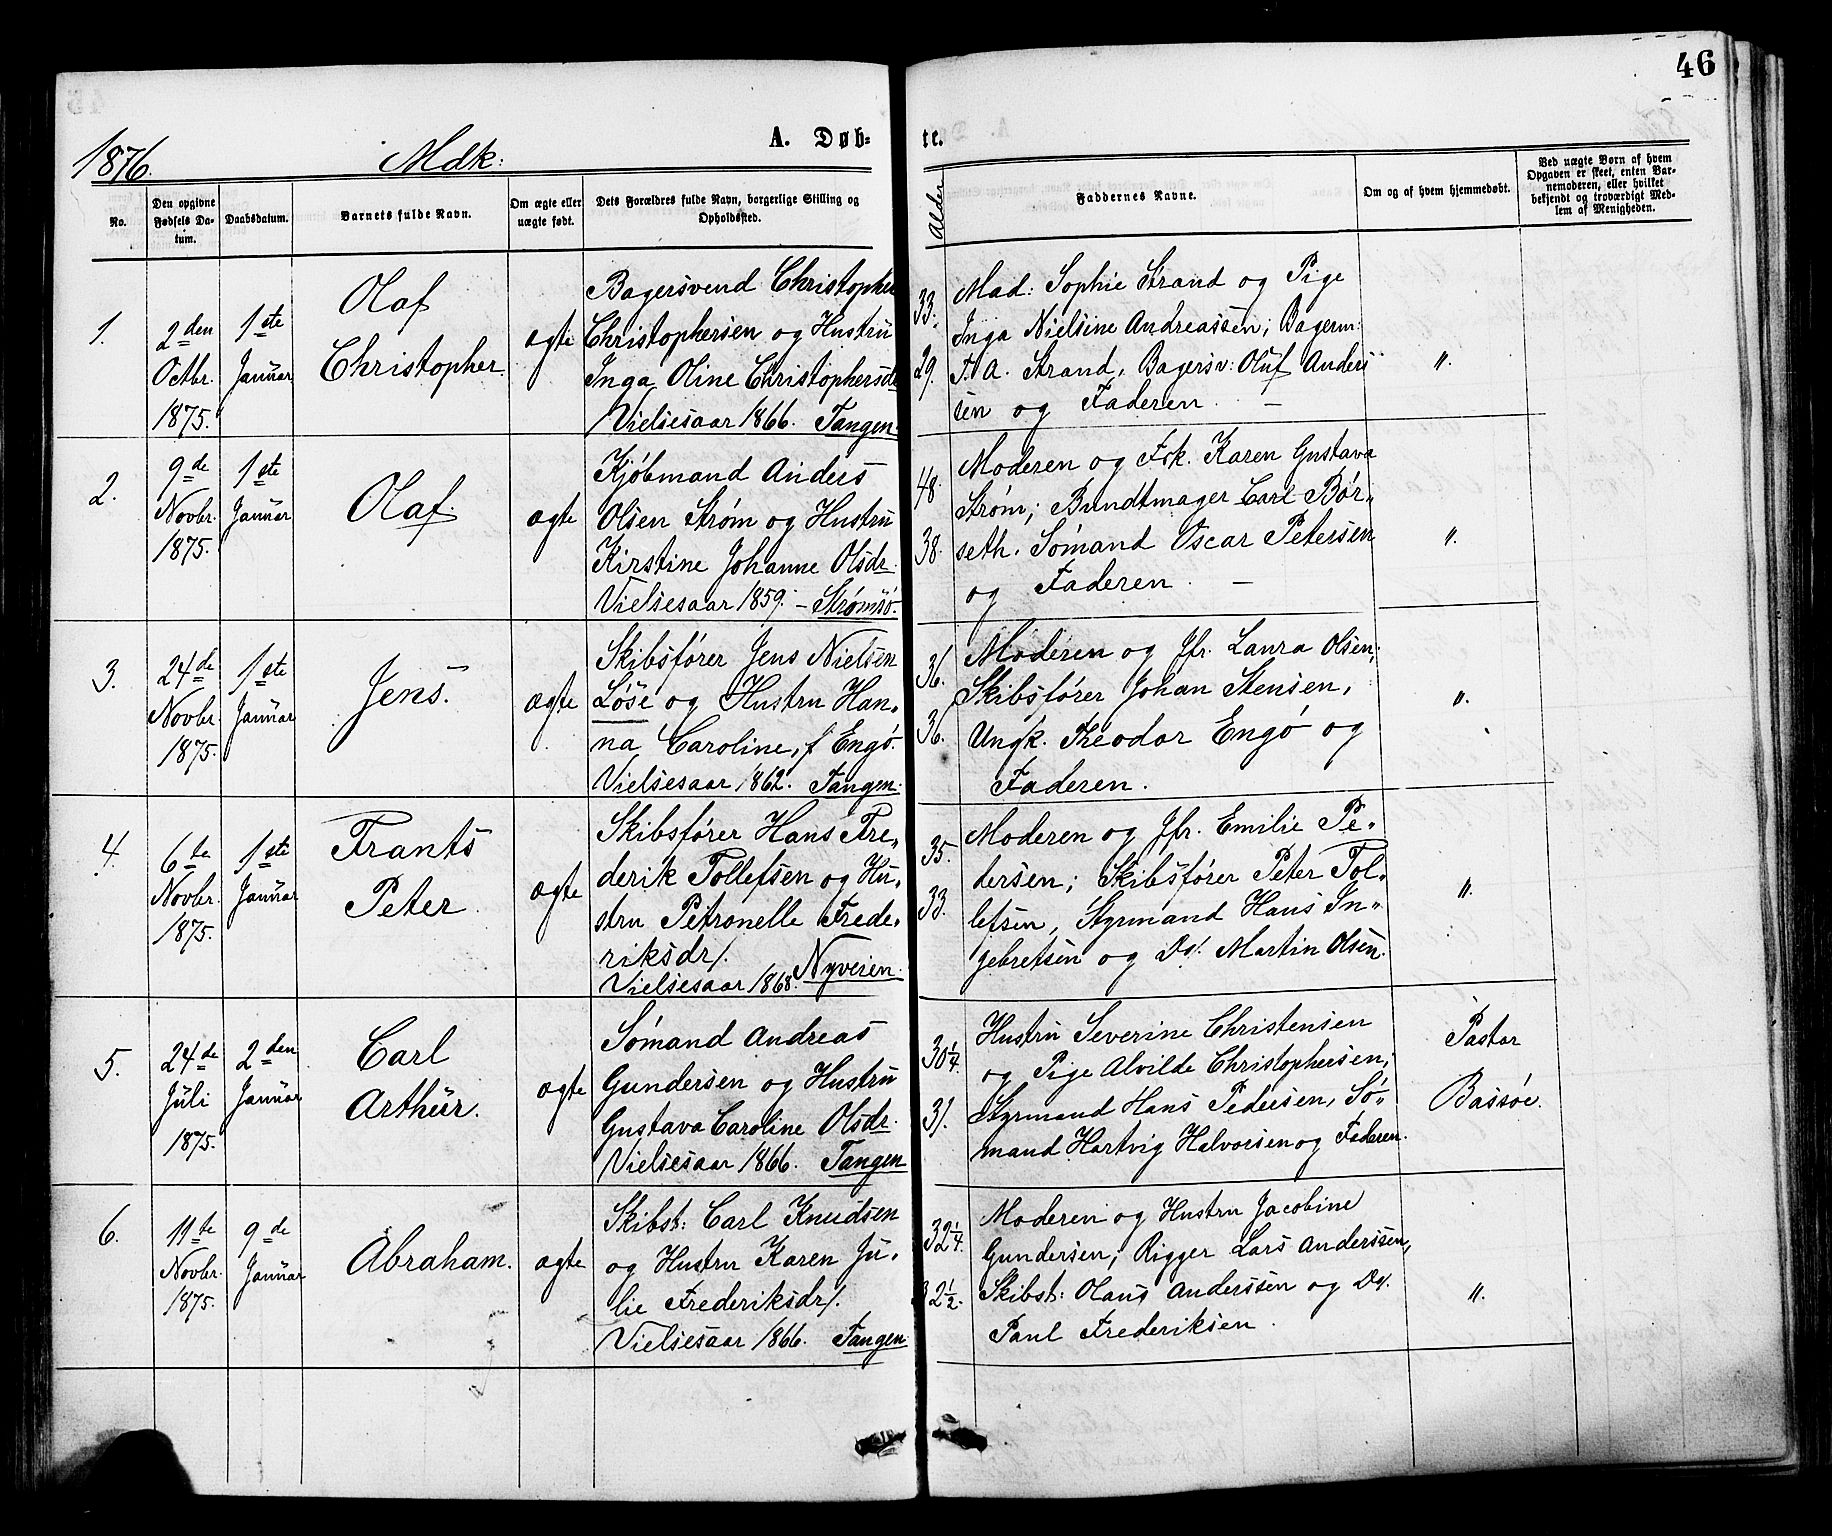 46
1876.
Mdk:
A. Døb=
te.
No.
Den opgivne
Fødsels Da-
tum.
Daabsdatum.
Barnets fulde Navn.
Om ægte eller
uægte født.
Dets Forældres fulde Navn, borgerlige Stilling og
Opholdssted.
Alder
Faddernes Navne.
Om og af hvem hjemmedøbt.
Ved uægte Børn af hvem
Opgaven er skeet, enten Bar-
nemoderen, eller hvilket
bekjendt og troværdigt Med-
lem af Menigheden.
1.
2den
Octbr.
1875.
1ste
Januar
Olaf
Christopher.
ægte
Bagersvend Christopher
Christophersen og Hustru
Inga Oline Christophersdr
Vielsesaar 1866. Tangen.
33.
29.
Mad: Sophie Strand og Pige
Inga Nielsine Andreassen; Bagerm:
T. A. Strand, Bagersv: Oluf Ander=
sen og Faderen. —
"
2.
9de
Novbr.
1875.
1ste
Januar
Olaf.
ægte
Kjøbmand Anders
Olsen Strøm og Hustru
Kirstine Johanne Olsdr.
Vielsesaar 1859. — Strømsø.
48.
38.
Moderen og Frk. Karen Gustava
Strøm; Bundtmager Carl Bør=
seth. Sømand Oscar Petersen
og Faderen. —
"
3.
24de
Novbr.
1875.
1ste
Januar
Jens.
ægte
Skibsfører Jens Nielsen
Løse og Hustru Han=
na Caroline, f Engø.
Vielsesaar 1862. Tangen.
36.
36.
Moderen og Jfr. Laura Olsen;
Skibsfører Johan Stensen,
Ungk. Theodor Engø og
Faderen.
"
4.
6te
Novbr.
1875.
1ste
Januar
Frants
Peter.
ægte
Skibsfører Hans Fre=
derik Tollefsen og Hu=
stru Petronelle Frede=
riksdr/.
Vielsesaar 1868. Nyveien.
35.
33.
Moderen og Jfr. Emilie Pe=
dersen; Skibsfører Peter Tol=
lefsen, Styrmand Hans In=
gebretsen og Do/. Martin Olsen.
"
5.
24de
Juli
1875.
2den
Januar
Carl
Arthur.
ægte
Sømand Andreas
Gundersen og Hustru
Gustava Caroline Olsdr.
Vielsesaar 1866. Tangen
30 1/4.
31.
Hustru Severine Christensen
og Pige Alvilde Christophersen;
Styrmand Hans Pedersen, Sø=
mand Hartvig Halvorsen og Faderen.
Pastor
Bassøe.
6.
11te
Novbr.
1875.
9de
Januar
Abraham.
ægte
Skibst: Carl Knudsen
og Hustru Karen Ju=
lie Frederiksdr/.
Vielsesaar 1866. Tangen
32 1/4.
32 1/2.
Moderen og Hustru Jacobine
Gundersen; Rigger Lars Anderssen,
Skibst: Olaus Anderssen og Do/.
Paul Frederiksen.
"